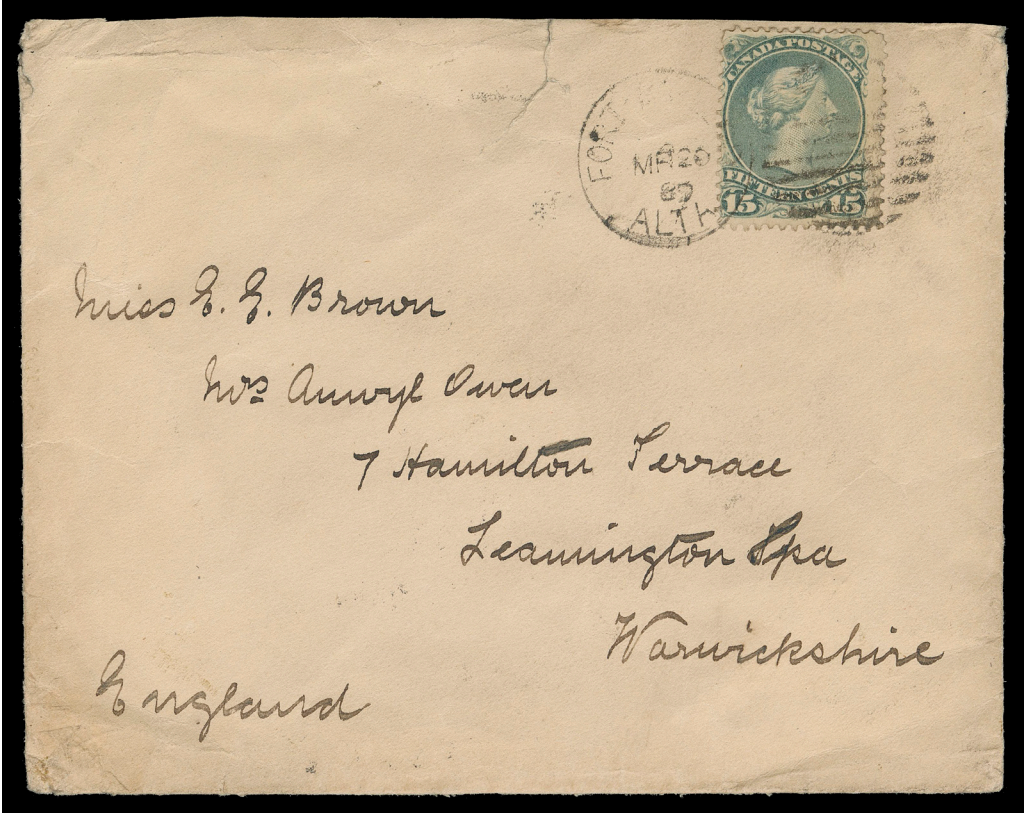 CANADA POSTAGE
FIFTEEN CENTS
15 15
FORT
MR 20
ALTH
Miss E. E. Brown
Mrs Anwyl Owen
7 Hamilton Terrace
Leamington Spa
Warwickshire
England